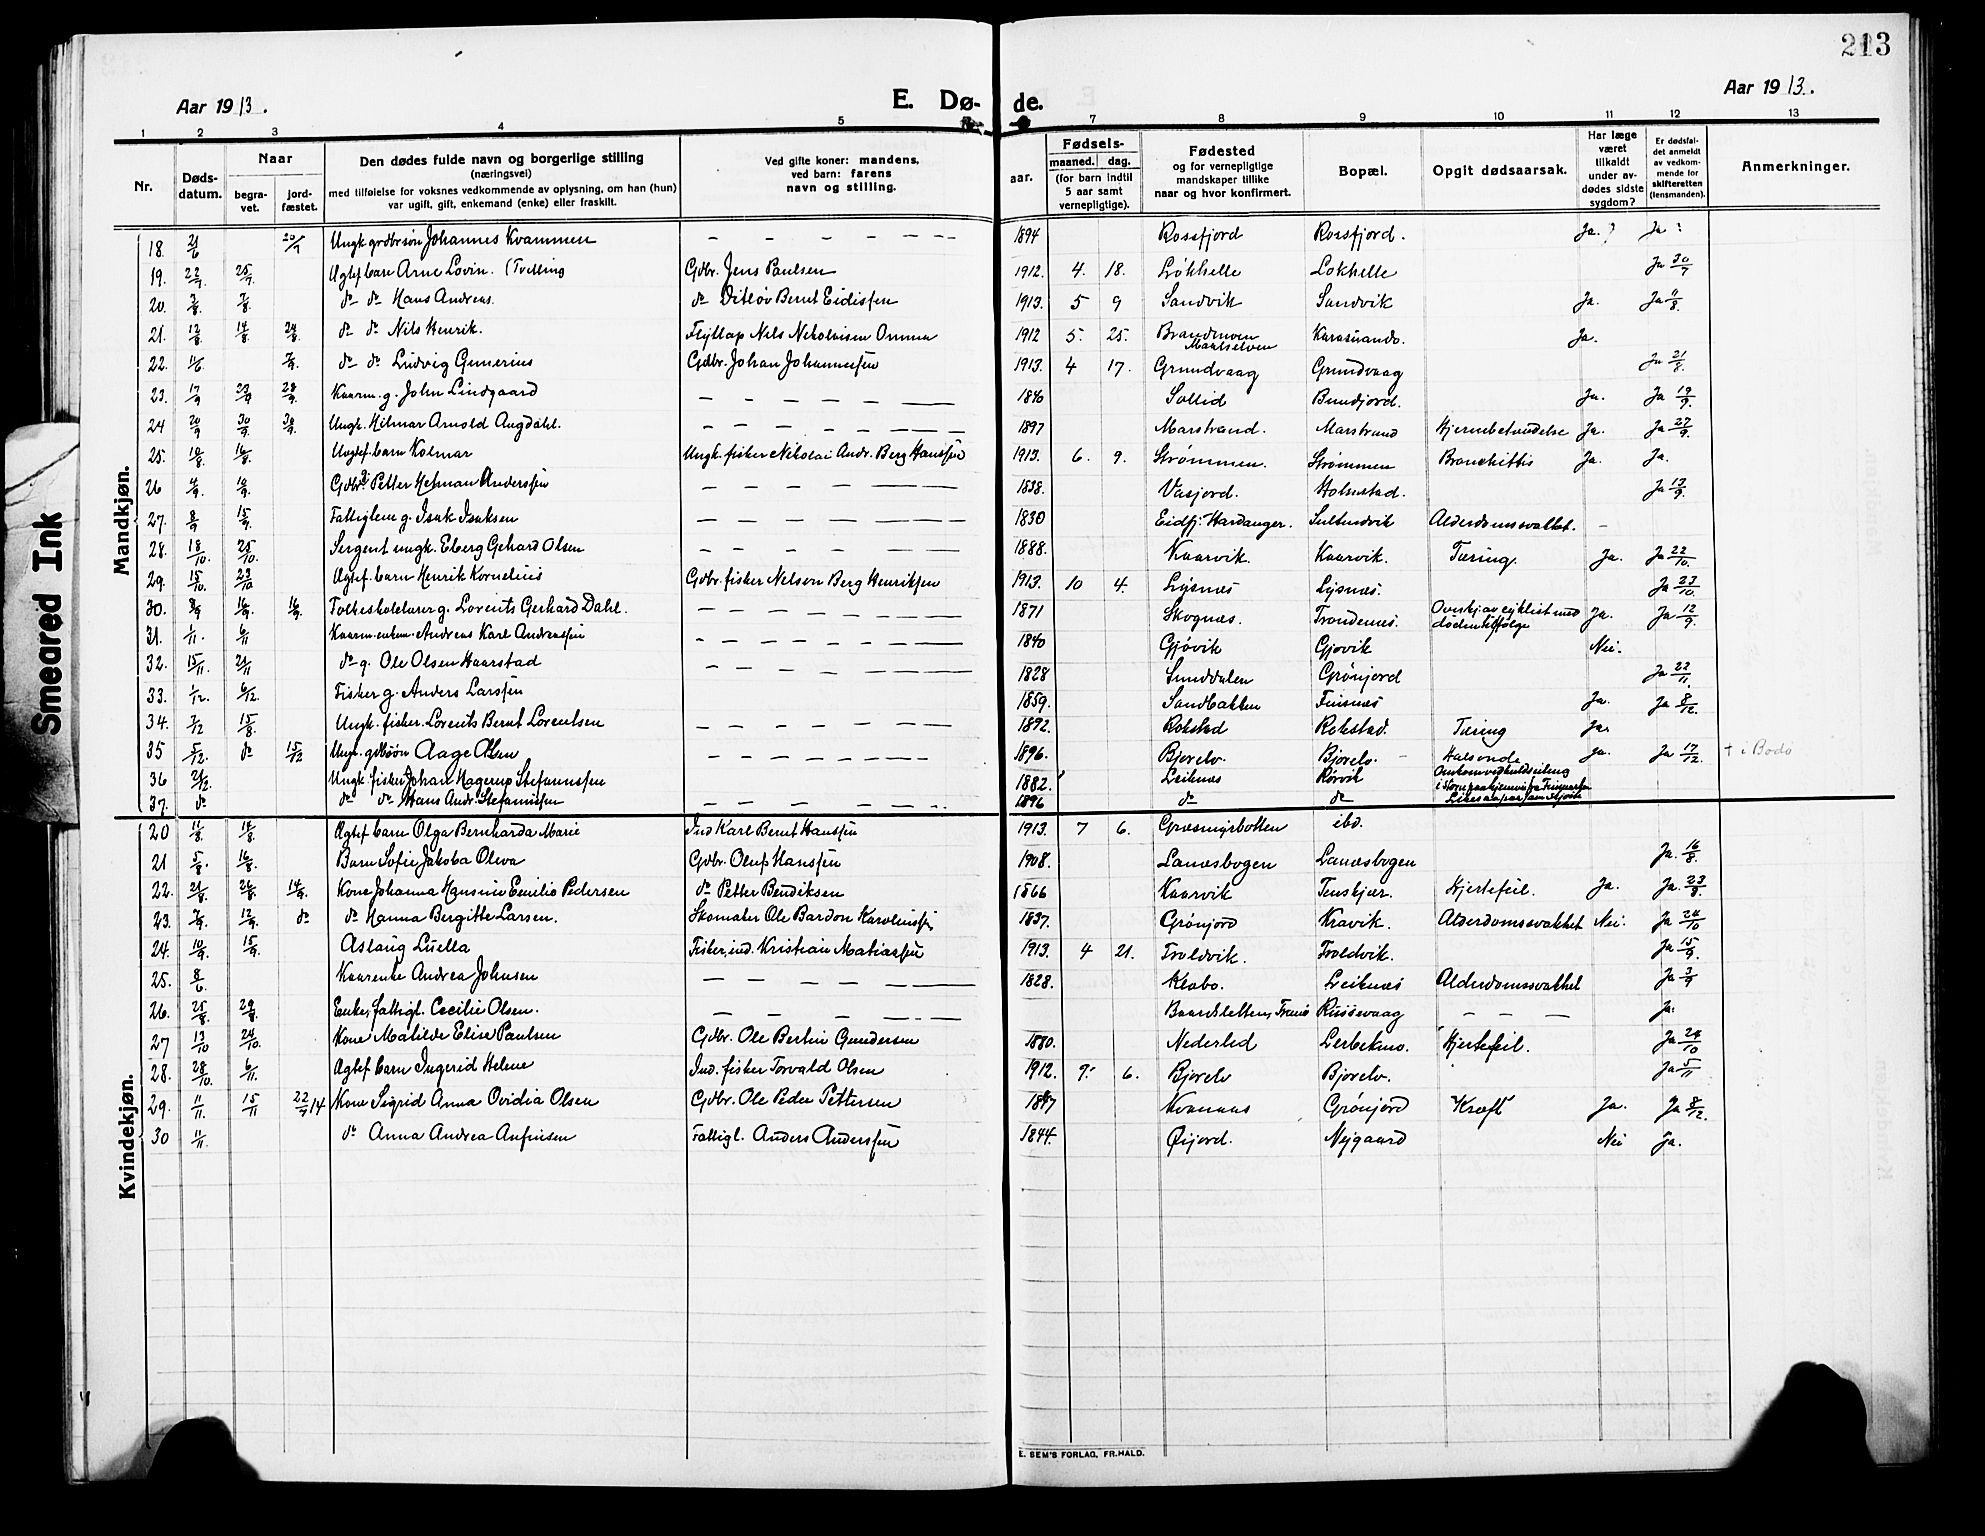 213
Aar 1913.
E. Dø-
de.
Aar 1913.
1 2 3 4 5 7 8 9 10 11 12 13
Nr.
Døds-
datum.
Naar
begra-
vet.
jord-
fæstet.
Den dødes fulde navn og borgerlige stilling
(næringsvei)
med tilføielse for voksnes vedkommende av oplysning, om han (hun)
var ugift, gift, enkemand (enke) eller fraskilt.
Ved gifte koner: mandens,
ved barn: farens
navn og stilling.
aar.
Fødsels-
maaned. dag.
(for barn indtil
5 aar samt
vernepligtige).
Fødested
og for vernepligtige
mandskaper tillike
naar og hvor konfirmert.
Bopæl.
Opgit dødsaarsak.
Har læge
været
tilkaldt
under av-
dødes sidste
sygdom?
Er dødsfal-
det anmeldt
av vedkom-
mende for
skifteretten
(lensmanden).
Anmerkninger.
Smeared Ink
Mandkjøn.
18. 21/6 20/7 Ungk. grdbrsøn Johannes Kvammen — — — — — — 1894 Rossfjord Rossfjord. Ja. ? Ja ?
19. 22/7 25/7. Ugtef barn Arne Lovin. (Tvilling Gdbr. Jens Paulsen 1912. 4. 18. Løkhelle Lokhelle Ja 30/7
20. 3/8. 7/8. do do Hans Andreas. do Ditløv Bernt Eidissen 1913. 5 9 Sandvik Sandvik Ja. Ja 11/8
21. 12/8 14/8 24/8. do do Nils Henrik. Flytlap Nils Nikolaisen Omma 1912 5. 25. Brandmoen Maalselven Ja.
22. 11/6 7/9. do do Ludvig Gunerius Gdbr. Johan Johannessen 1913. 4 17. Grundvaag Grundvaag Ja 21/8.
23. 17/9 23/9 28/9. Kaarm. g. John Lindgaard — — — — — — 1846 Sollid Bundjord. Ja. Ja 19/9.
24 20/9 30/9. 30/9. Ungk. Hilmar Arnold Angdahl. — — — — — — 1897 Marstrand. Marstrand Hjernebetændelse Ja. Ja 27/9.
25. 10/8. 16/8. Uegtef. barn Kolmar Ungk. fisker Nikolai Andr. Berg Hanssen 1913. 6. 9. Strømmen. Strømmen Bronchittis Ja. Ja.
26 4/9. 10/9. Gdbr. Petter Heman Anderssen — — — — — — 1838. Vasjord. Holmstad. Ja 13/9.
27. 8/9 15/9. Fattiglem g. Isak Isaksen — — — — — — 1830 Eidfj. Hardanger. Sultindvik Alderdomssvakhet. —
28. 18/10 25/10. Sergent ungk. Eberg Gehard Olsen — — — — — — 1888. Kaarvik. Kaarvik. Tæring. Ja. Ja 22/10.
29. 15/10. 23/10 Ægtef. barn Henrik Kornelius Gdbr. fisker Nelson Berg Henriksen 1913. 10 4. Lysnæs Lysnæs. Ja 23/10
30. 8/9 16/9. 16/9. Folkeskolelærer g. Lorents Gerhard Dahl. — — — — — — 1871 Skognæs. Trondenæs. Overkj av cyklist med døden tilfølge Ja. Ja 12/9.
31. 1/11. 6/11 Kaarm. enkem. Andreas Karl Andreassen — — — — — — 1840 Gjövik Gjovik Nei.
32. 15/11 21/11 do g. Ole Olsen Haarstad — — — — — — 1828 Sunddalen Grönjord Ja 22/11.
33. 1/12. 6/12. Fisker g. Anders Larssen 1859. Sandbakken Finsnæs Ja. Ja 8/12.
34. 7/12 15/8. Ungk. fisker. Lorents Bernt Lorentsen — — — — — — 1892. Rokstad Rokstad. Tæring Ja.
35 5/12. do 15/12 Ungk. gdbsøn Aage Olsen — — — — — — 1896. Bjorelv. Bjorelv. Halsonde Ja. Ja 17/12. † i Bodö
36 21/12. Ungk. fisker Johan Hagerup Stefanussen 1882. Leiknæs Rörvik
37. do do do Hans Andr. Stefanussen — — — — — 1896 do do
Kvindekjøn.
20 11/8. 18/8. Ægtef barn Olga Bernharda Marie Ind Karl Bernt Hanssen 1913. 7 6. Græsmyrbotten ibd.
21 5/8. 16/8. Barn Sofie Jakoba Oleva Gdbr. Oluf Hanssen 1908. Lanæsbogen Lanæsbogen Ja. 16/8.
22. 21/8 26/8. 14/9. Kone Johanna Hansine Emilie Pedersen do Petter Bendiksen 1866 Kaarvik Tenskjær. Hjertefeil. Ja. Ja. 23/8.
23. 7/9. 12/9. do do Hanna Bergitte Larsen. Skomaker Ole Bardon Karolinssen 1837. Grönjord Kravik. Alderdomssvakhet Nei. Ja 24/10
24. 10/9. 15/9. Aslaug Luella Fisker, ind. Kristian Matiassen 1913. 4 21. Troldvik. Troldvik. Ja 15/9.
25. 8/6 Kaarenke Andrea Johnsen — — — — — 1828. Klabo. Leiknæs Alderdomssvakhet Ja 3/9
26. 25/8. 29/8. Enke, fattigl. Cecilie Olsen. — — — — — Baardsletten, Trenö Russevaag — — — Ja.
27 13/10 24/10. Kone Matilde Elise Paulsen Gdbr. Ole Bertin Gundersen 1880. Nederlid Lerbekmo. Hjertefeil. Ja 24/10
28. 28/10. 6/11. Ægtef barn Ingerid Helene Ind. fisker Torvald Olsen 1912. 9. 6. Bjorelv Bjorelv. Ja 5/11
29. 11/11. 15/11 22/9 14 Kone Sigrid Anna Ovidia Olsen Gdbr. Ole Peder Pettersen Kvanaas Grönjord Kræft Ja. Ja 8/12.
30 11/11. do Anna Andrea Anfinsen Fattigl. Anders Anderssen 1844. Öijord. Nygaard Nei Ja.
E. SEM'S FORLAG, FR.HALD.